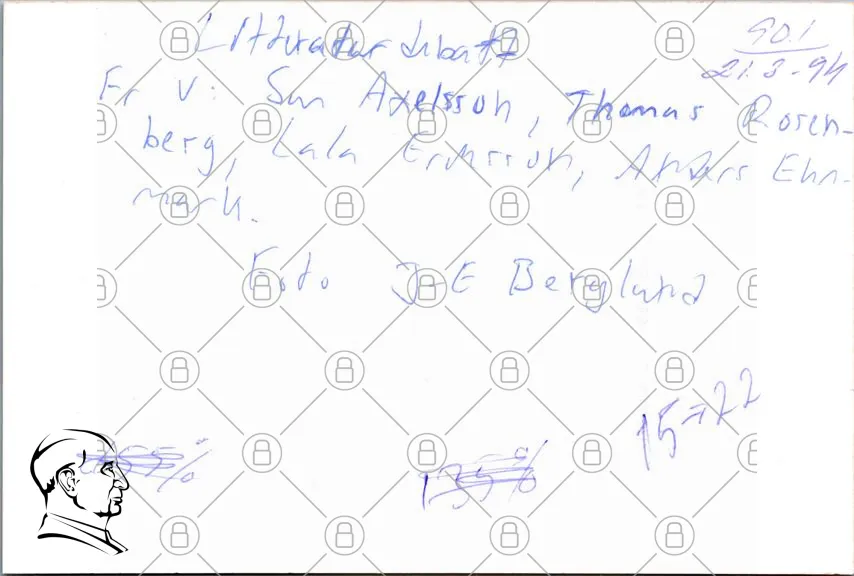 Litteraturdebatt
901
21.3-94
Fr v: Sun Axelsson, Thomas Rosen-
berg, Lala Eriksson, Anders Ehn-
mark.
Foto J-E Berglund
15=22
135%